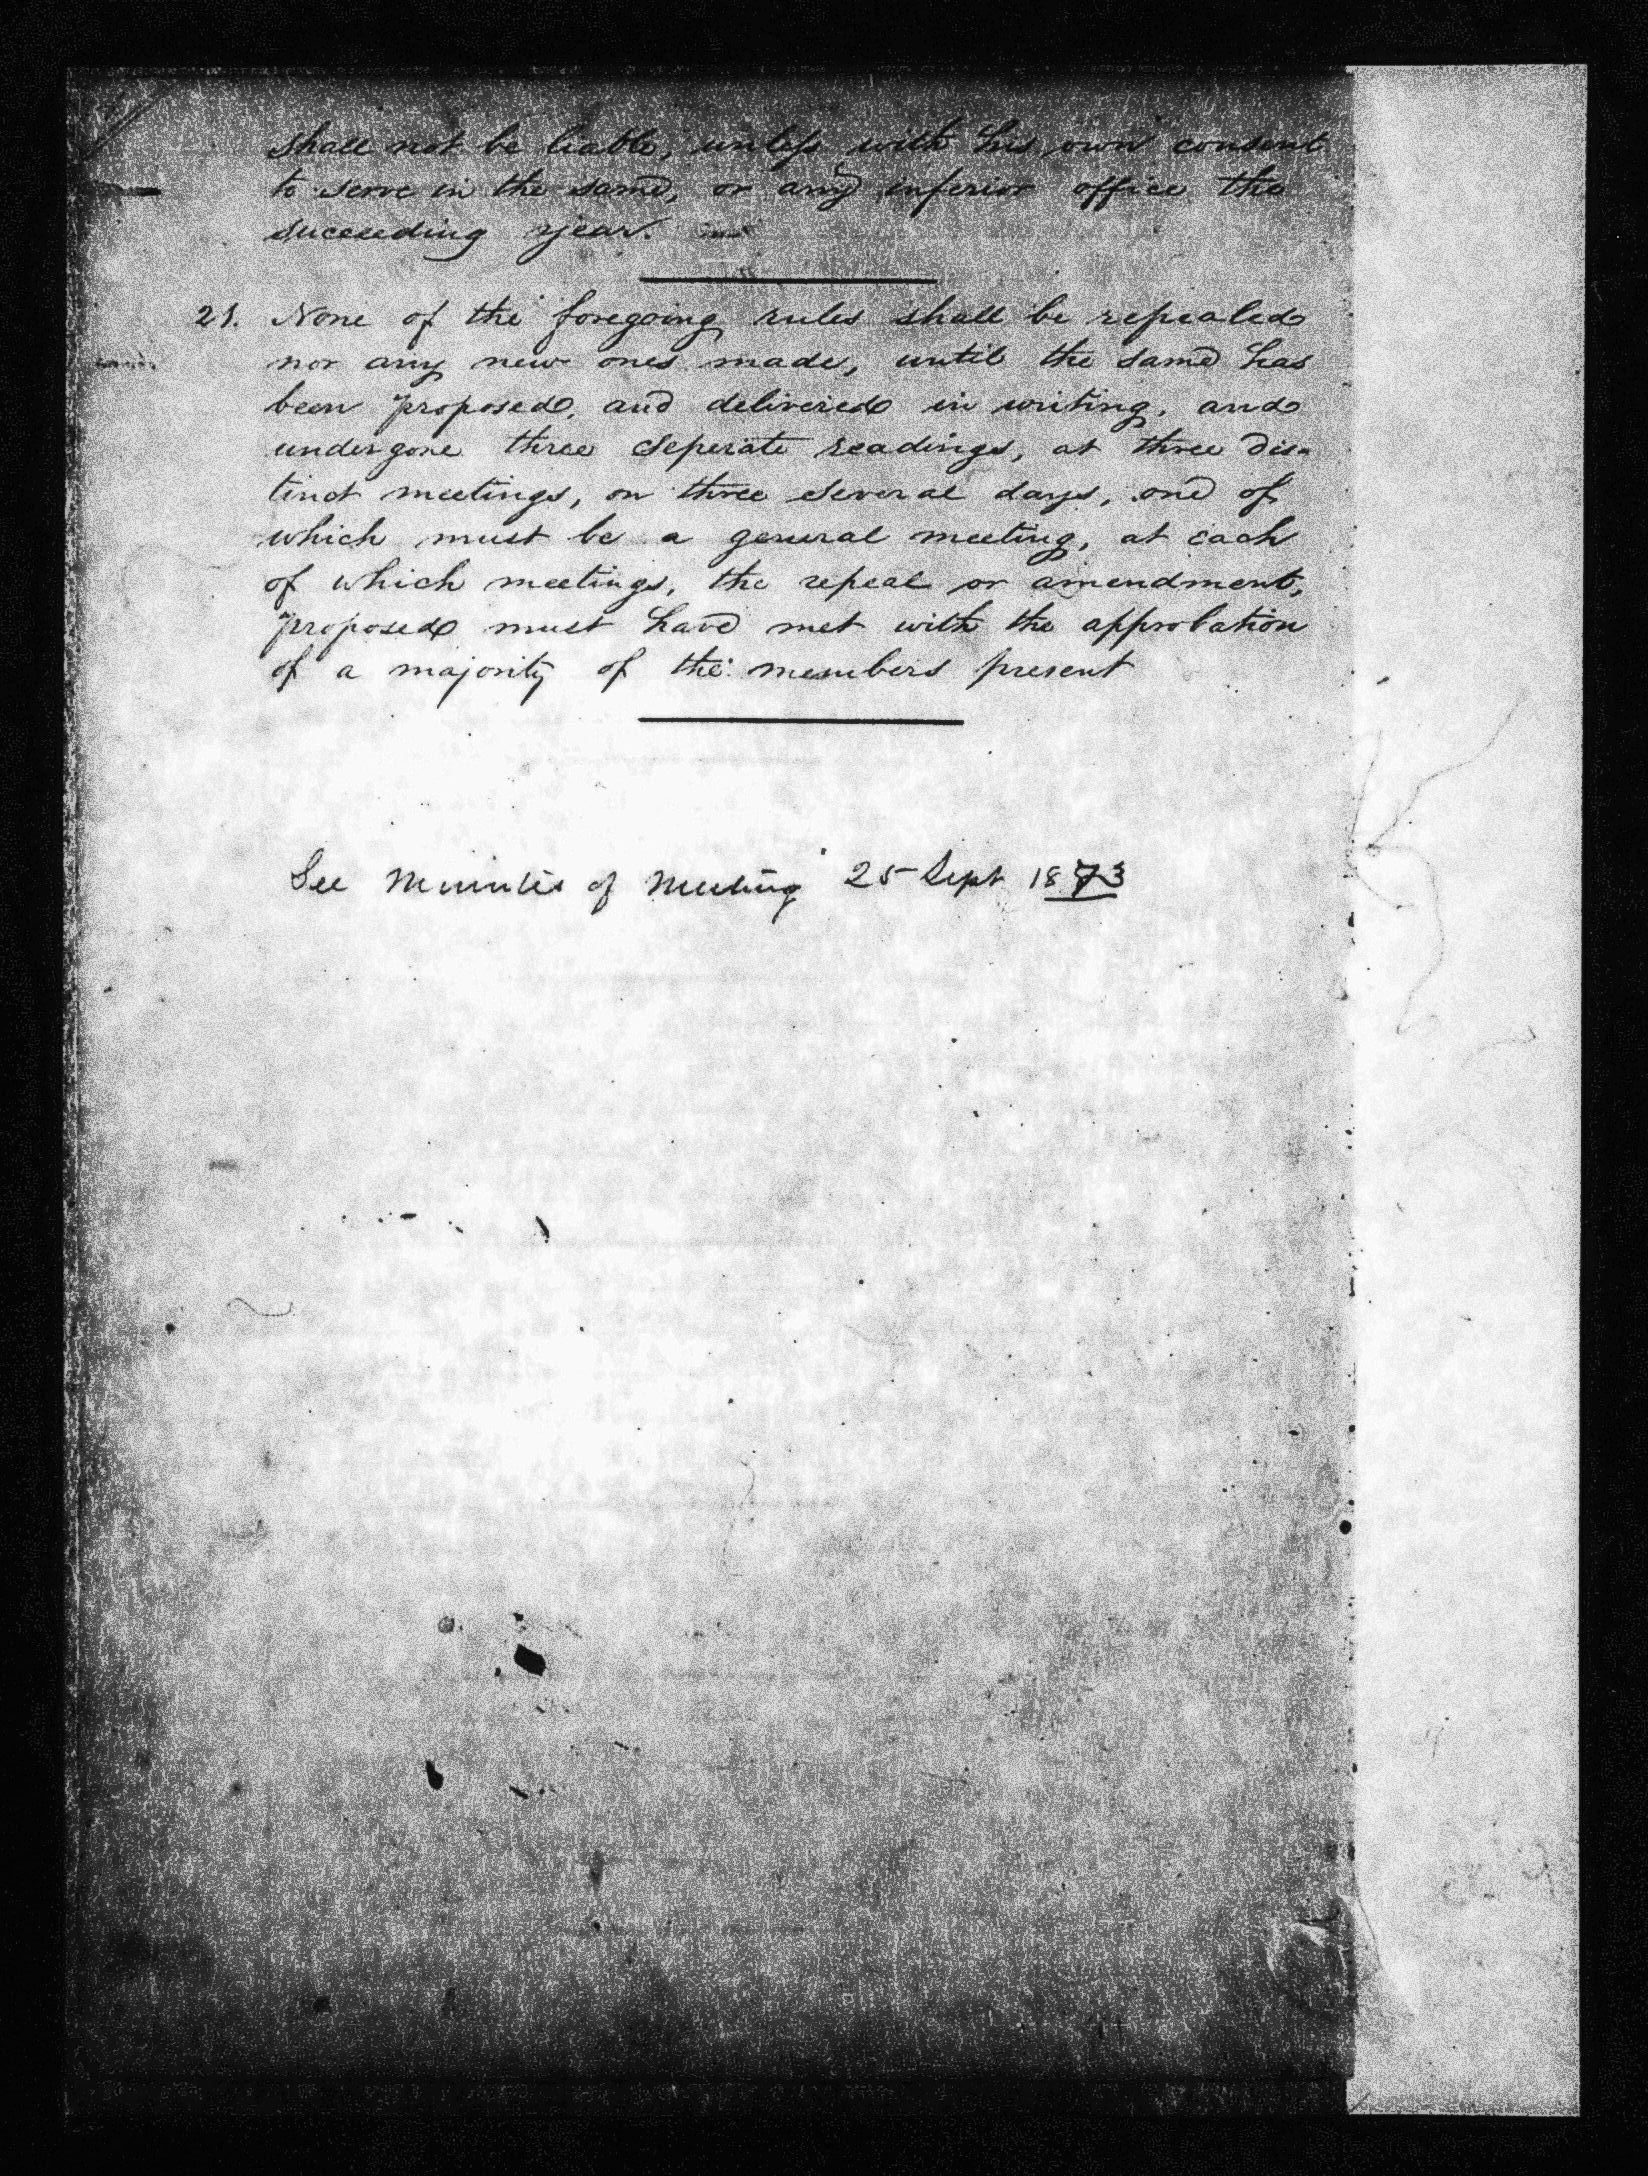 shall not be liable, unless with his own consent
to serve in the same, or any inferior office the
succeeding year.
21. None of the foregoing rules shall be repealed
nor any new ones made, until the same has
been proposed, and delivered in writing, and
undergone three seperate readings, at three dis-
tinct meetings, on three several days, one of
which must be a general meeting, at each
of which meetings, the repeal or amendment,
proposed must have met with the approbation
of a majority of the members present
See Minutes of Meeting 25 Sept 1873